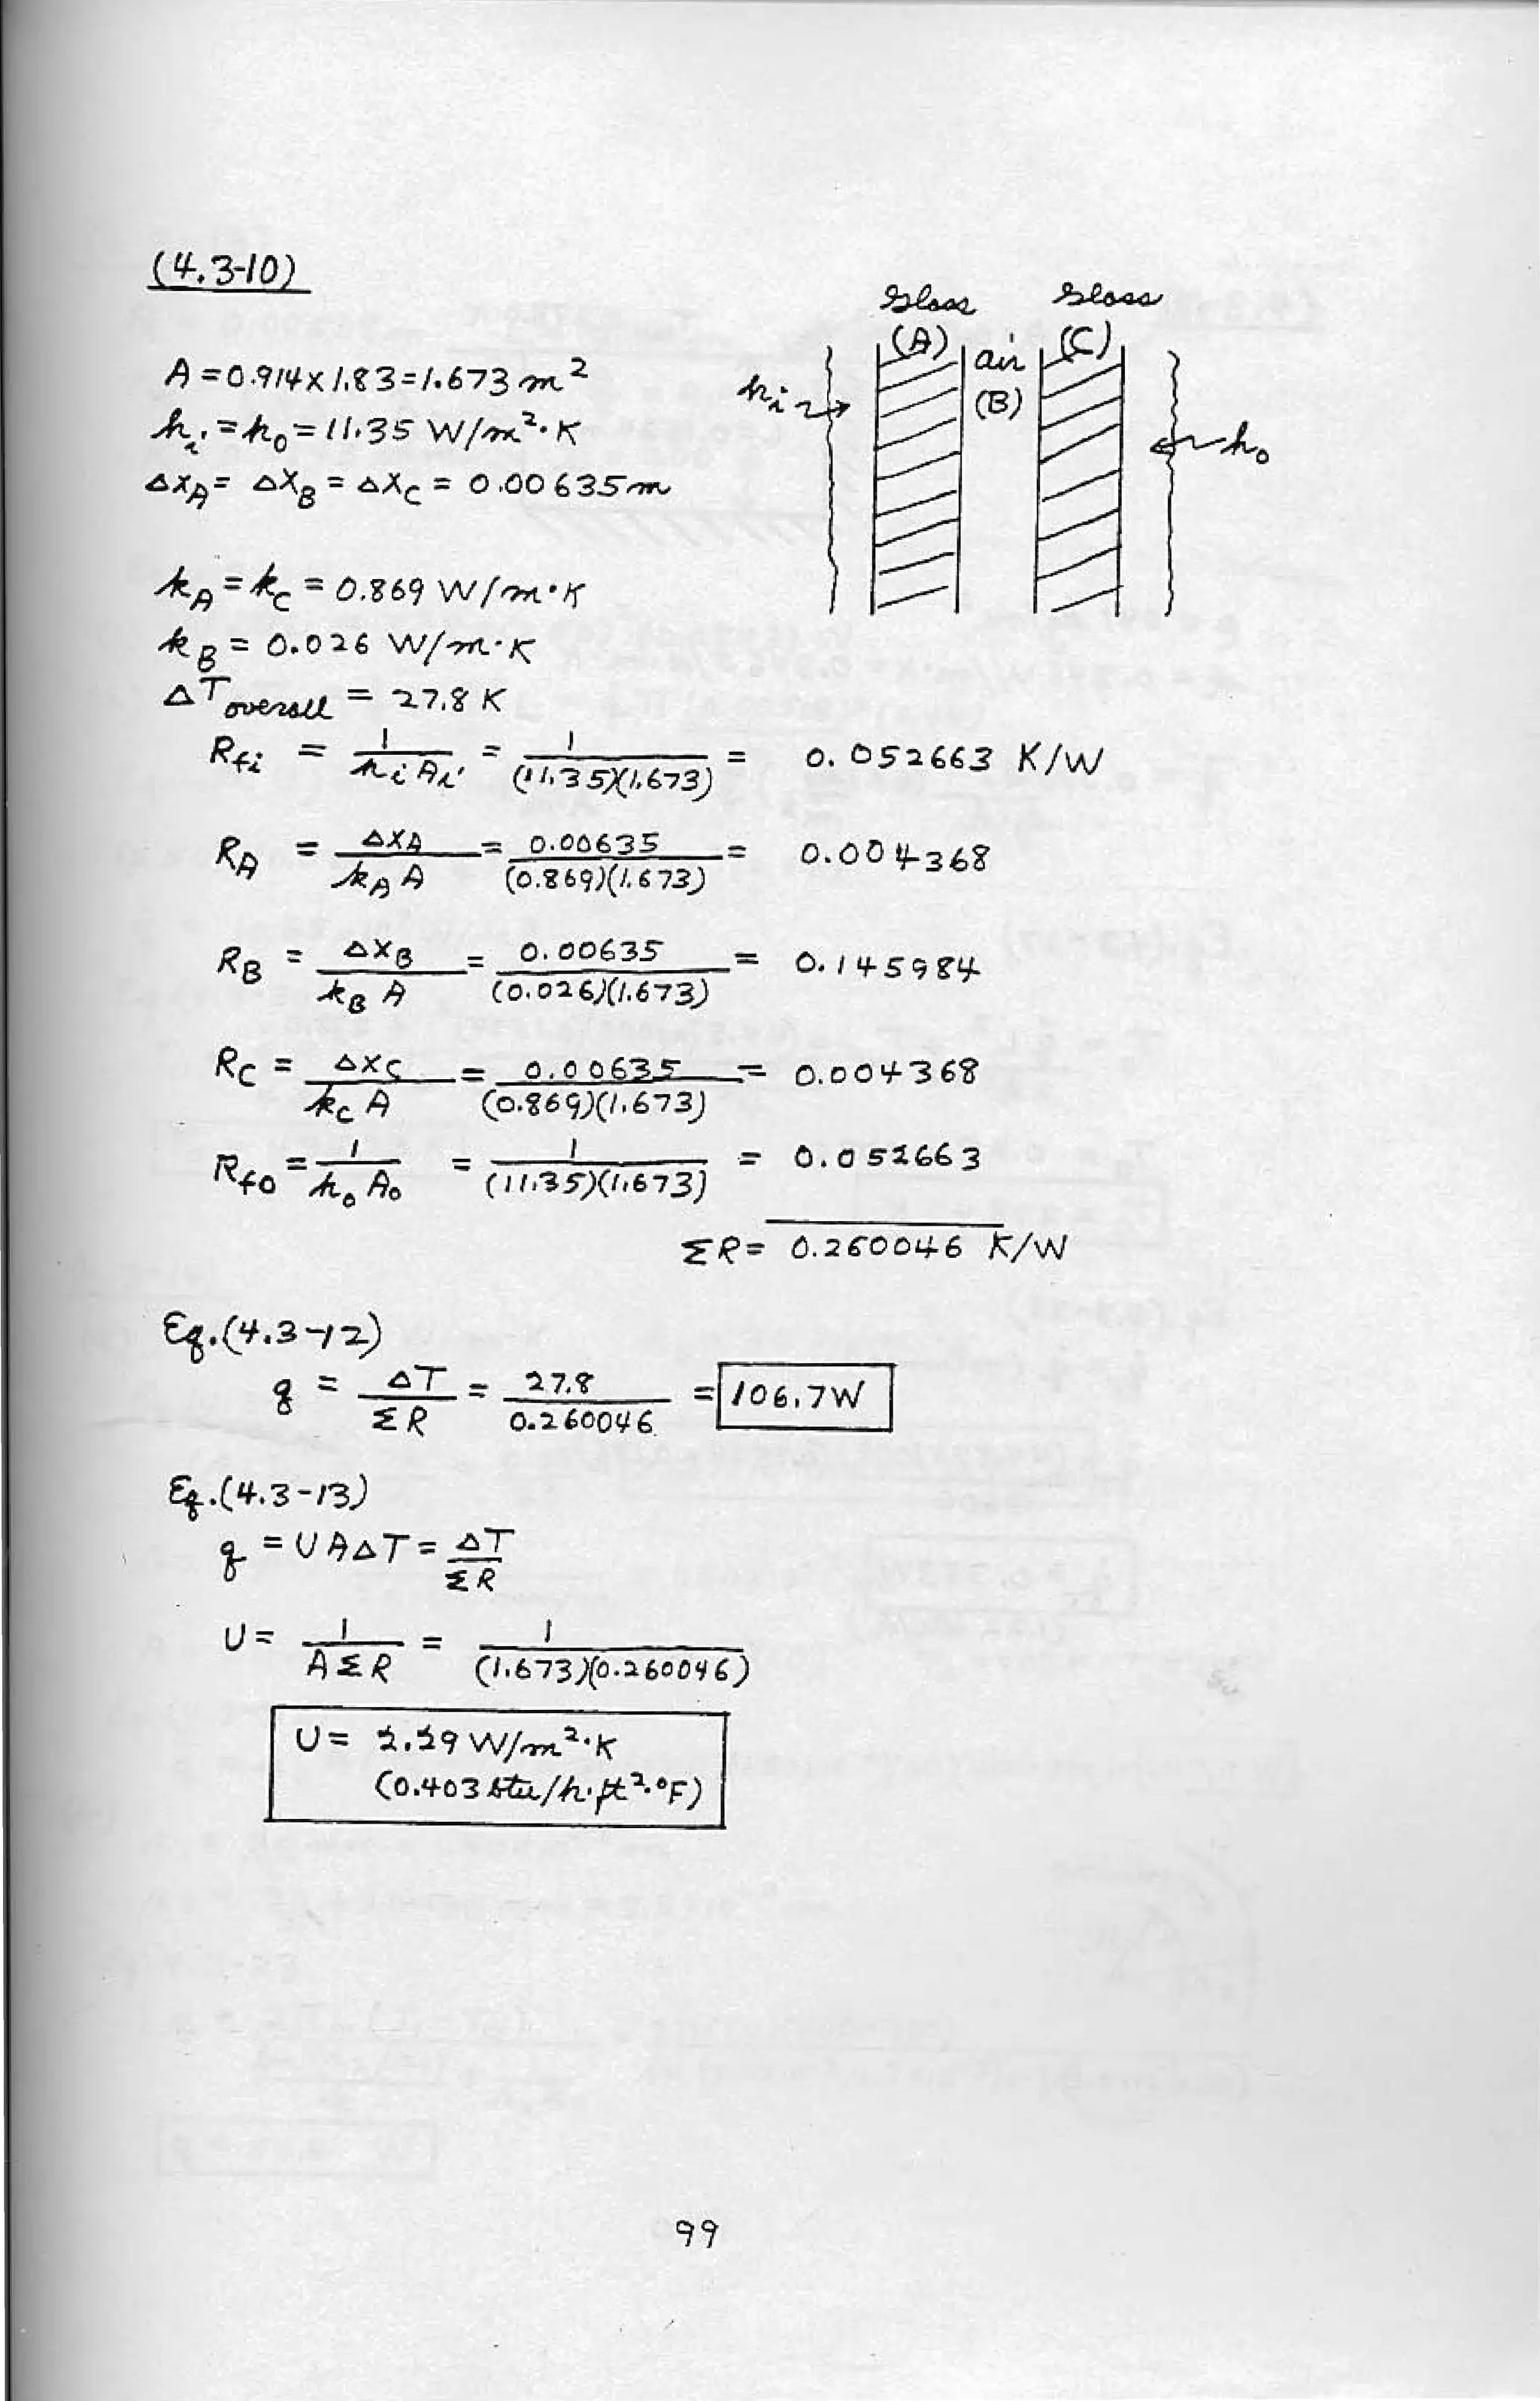 (4.3-10)
Glass Glass
(A) air (C)
(B)
hi
ho
A = 0.914 x 1.83 = 1.673 m²
hi = ho = 11.35 W/m²·K
ΔxA = ΔxB = ΔxC = 0.00635 m
kA = kC = 0.869 W/m·K
kB = 0.026 W/m·K
ΔToverall = 27.8 K
Rfi = 1/(hi Ai) = 1/((11.35)(1.673)) = 0.052663 K/W
RA = ΔxA/(kA A) = 0.00635/((0.869)(1.673)) = 0.004368
RB = ΔxB/(kB A) = 0.00635/((0.026)(1.673)) = 0.145984
RC = ΔxC/(kC A) = 0.00635/((0.869)(1.673)) = 0.004368
Rfo = 1/(ho Ao) = 1/((11.35)(1.673)) = 0.052663
ΣR = 0.260046 K/W
Eq.(4.3-12)
q = ΔT/ΣR = 27.8/0.260046 = 106.7 W
Eq.(4.3-13)
q = UAΔT = ΔT/ΣR
U = 1/(AΣR) = 1/((1.673)(0.260046))
U = 2.29 W/m²·K
(0.403 btu/h·ft²·°F)
99